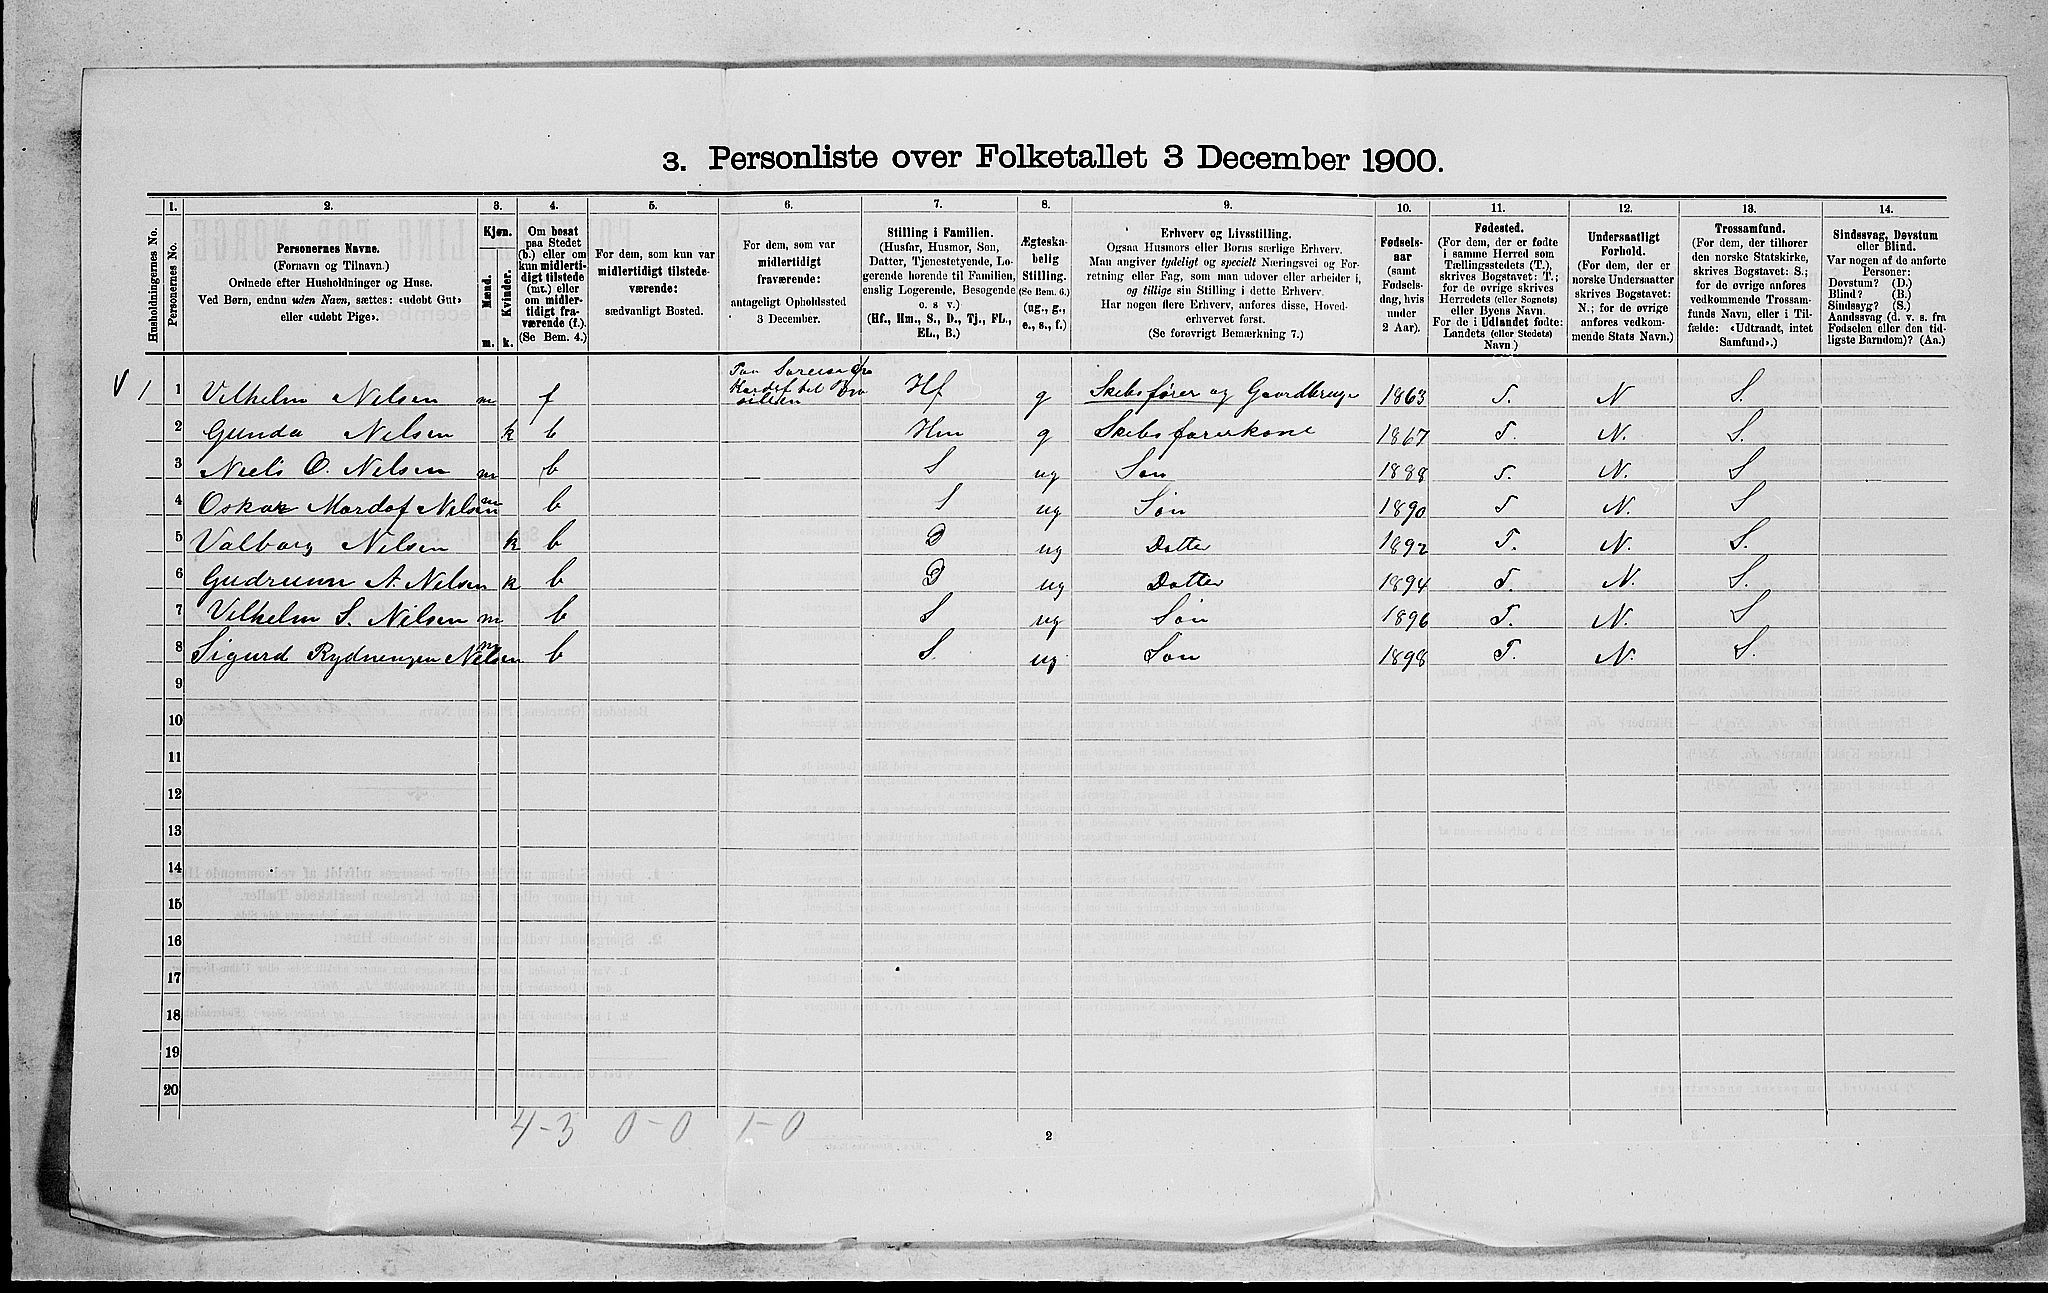 3. Personliste over Folketallet 3 December 1900.
Husholdningernes No.
1. 2. 3. 4. 5. 6. 7. 8. 9. 10. 11. 12. 13. 14.
Personernes No.
Personernes Navne.
(Fornavn og Tilnavn.)
Ordnede efter Husholdninger og Huse.
Ved Børn, endnu uden Navn, sættes: «udøbt Gut»
eller «udøbt Pige».
Kjøn.
Mænd. Kvinder.
m. k.
Om bosat
paa Stedet
(b.) eller om
kun midlerti-
digt tilstede
(mt.) eller
om midler-
tidigt fra-
værende (f.).
(Se Bem. 4.)
For dem, som kun var
midlertidigt tilstede-
værende:
sædvanligt Bosted.
For dem, som var
midlertidigt
fraværende:
antageligt Opholdssted
3 December.
Stilling i Familien.
(Husfar, Husmor, Søn,
Datter, Tjenestetyende, Lo-
gerende hørende til Familien,
enslig Logerende, Besøgende
o. s v.)
(Hf., Hm., S., D., Tj., FL.,
EL., B.)
Ægteska-
belig
Stilling.
(Se Bem. 6.)
(ug., g.,
e., s., f.)
Erhverv og Livsstilling.
Ogsaa Husmors eller Børns særlige Erhverv.
Man angiver tydeligt og specielt Næringsvei og For-
retning eller Fag, som man udøver eller arbeider i,
og tillige sin Stilling i dette Erhverv.
Har nogen flere Erhverv, anføres disse, Hoved-
erhvervet først.
(Se forøvrigt Bemærkning 7.)
Fødsels-
aar
(samt
Fødsels-
dag, hvis
under
2 Aar).
Fødested.
(For dem, der er fødte
i samme Herred som
Tællingsstedets (T.),
skrives Bogstavet: T.;
for de øvrige skrives
Herredets (eller Sognets)
eller Byens Navn.
For de i Udlandet fødte:
Landets (eller Stedets)
Navn.)
Undersaatligt
Forhold.
(For dem, der er
norske Undersaatter
skrives Bogstavet:
N.; for de øvrige
anføres vedkom-
mende Stats Navn.)
Trossamfund.
(For dem, der tilhører
den norske Statskirke,
skrives Bogstavet: S.;
for de øvrige anføres
vedkommende Trossam-
funds Navn, eller i Til-
fælde: «Udtraadt, intet
Samfund».)
Sindssvag, Døvstum
eller Blind.
Var nogen af de anførte
Personer:
Døvstum? (D.)
Blind? (B.)
Sindssyg? (S.)
Aandssvag (d. v. s. fra
Fødselen eller den tid-
ligste Barndom)? (Aa.)
1 1 Vilhelm Nelsen m f Hf g Skibsfører og Gaardbruger 1863 T. N S.
2 Gunda Nelsen k b Hm g Skibsførerkone 1867 T. N. S.
3 Niels O. Nelsen m b S ug Søn 1888 T. N. S
4 Oskar Nelsen m b S ug Søn 1890 T N. S
5 Valborg Nelsen k b D ug Datter 1892 T. N. S.
6 Gudrunn A. Nelsen k b D ug Datter 1894 T. N. S.
7 Vilhelm S. Nelsen m b S ug Søn 1896 T. N. S
8 Sigurd Rydningen Nelsen m b S. ug Søn 1898 T. N. S.
9
10
11
12
13
14
15
16
17
18
19
20
4-3 0-0 1-0
2